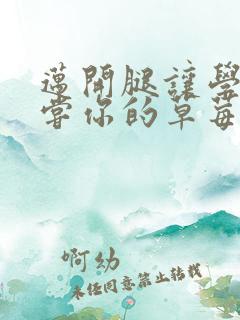 邁開腿讓學
嘗你的草莓
啊幼
未經同意禁止轉載